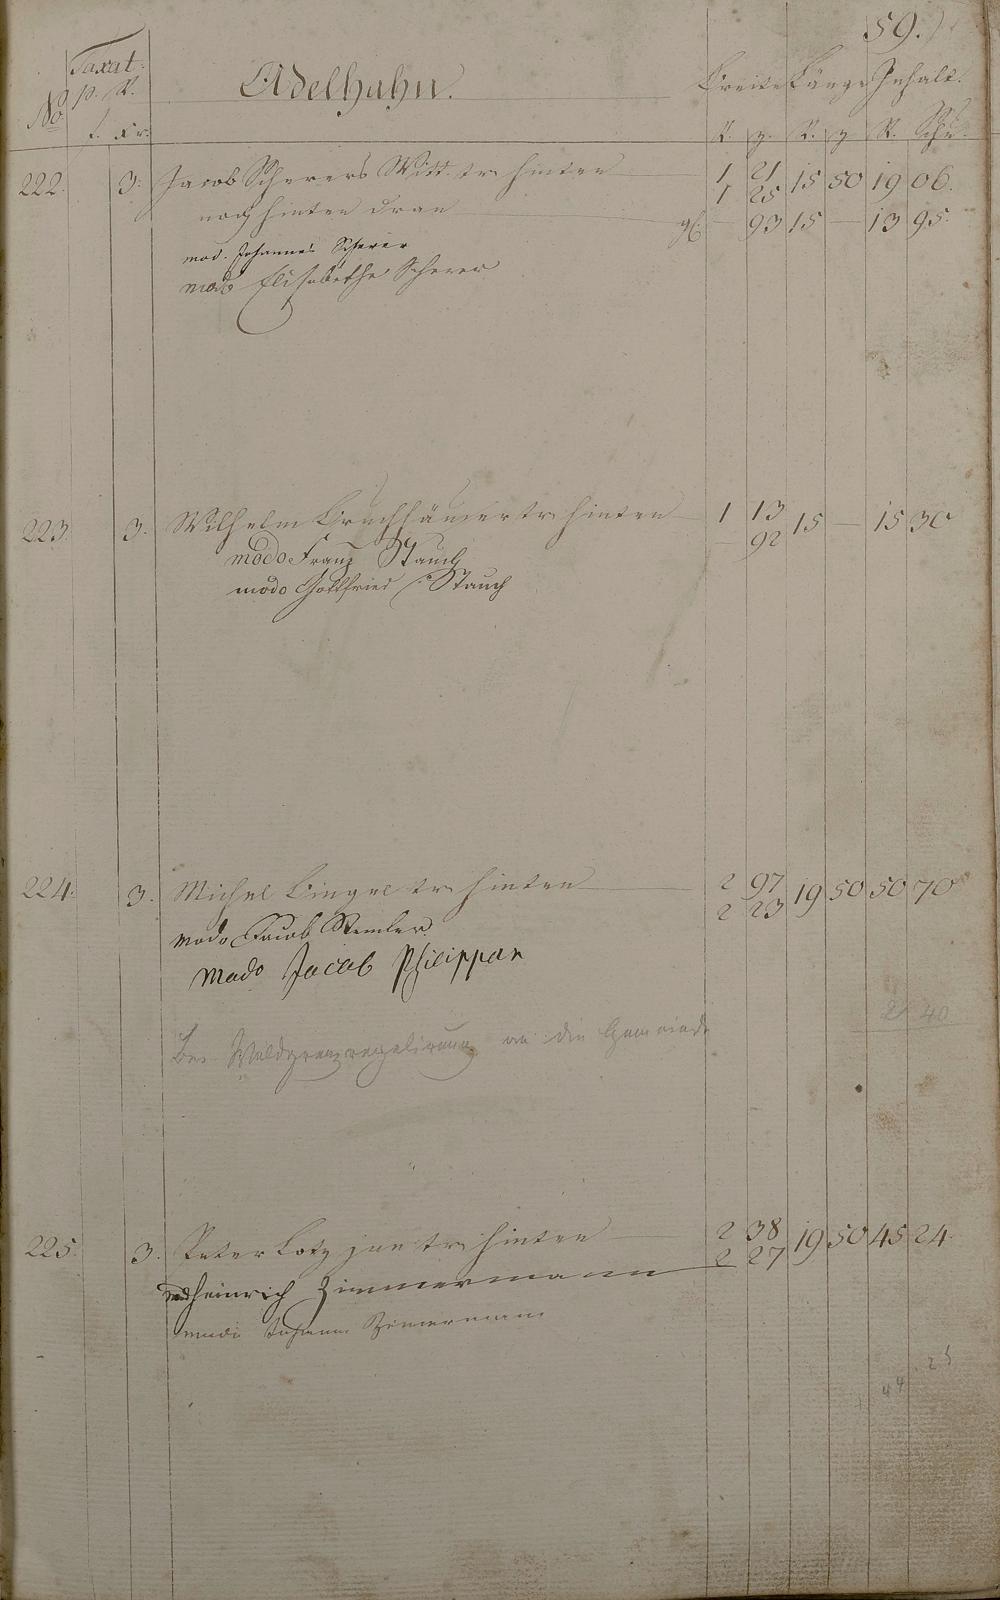 59.
Taxat. Adelhahn. Breite Länge Inhalt.
No p. R.
f. xr. R. z. R. z R. Sch.
222. 3. Jacob Scherers Witt. tr. hinten 1 21 15 50 19 06.
1 25
noch hinten dran gl. — 93 15 — 13 95.
mod. Johannes Scherer
modo Elisabethe Scherer
223. 3. Wilhelm Bruchhäuser tr. hinten 1 13 15 — 15 30
— 92
modo Franz Stauch
modo Gottfried Stauch
224. 3. Michel Bingel tr. hinten 2 97 19 50 50 70
2 23
modo Jacob Stemler
modo Jacob Philippar
2 40
Bei Waldgrenzregulirung an die Gemeinde
225. 3. Peter Lotz jun tr. hinten 2 38 19 50 45 24.
2 27
mod Heinrich Zimmermann
modo Johann Zimmermann
44 25